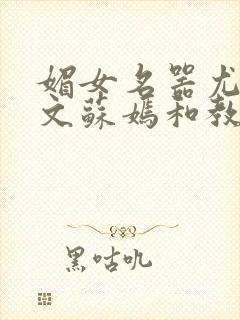 媚女名器尤
文蘇媽和教
黑咕叽